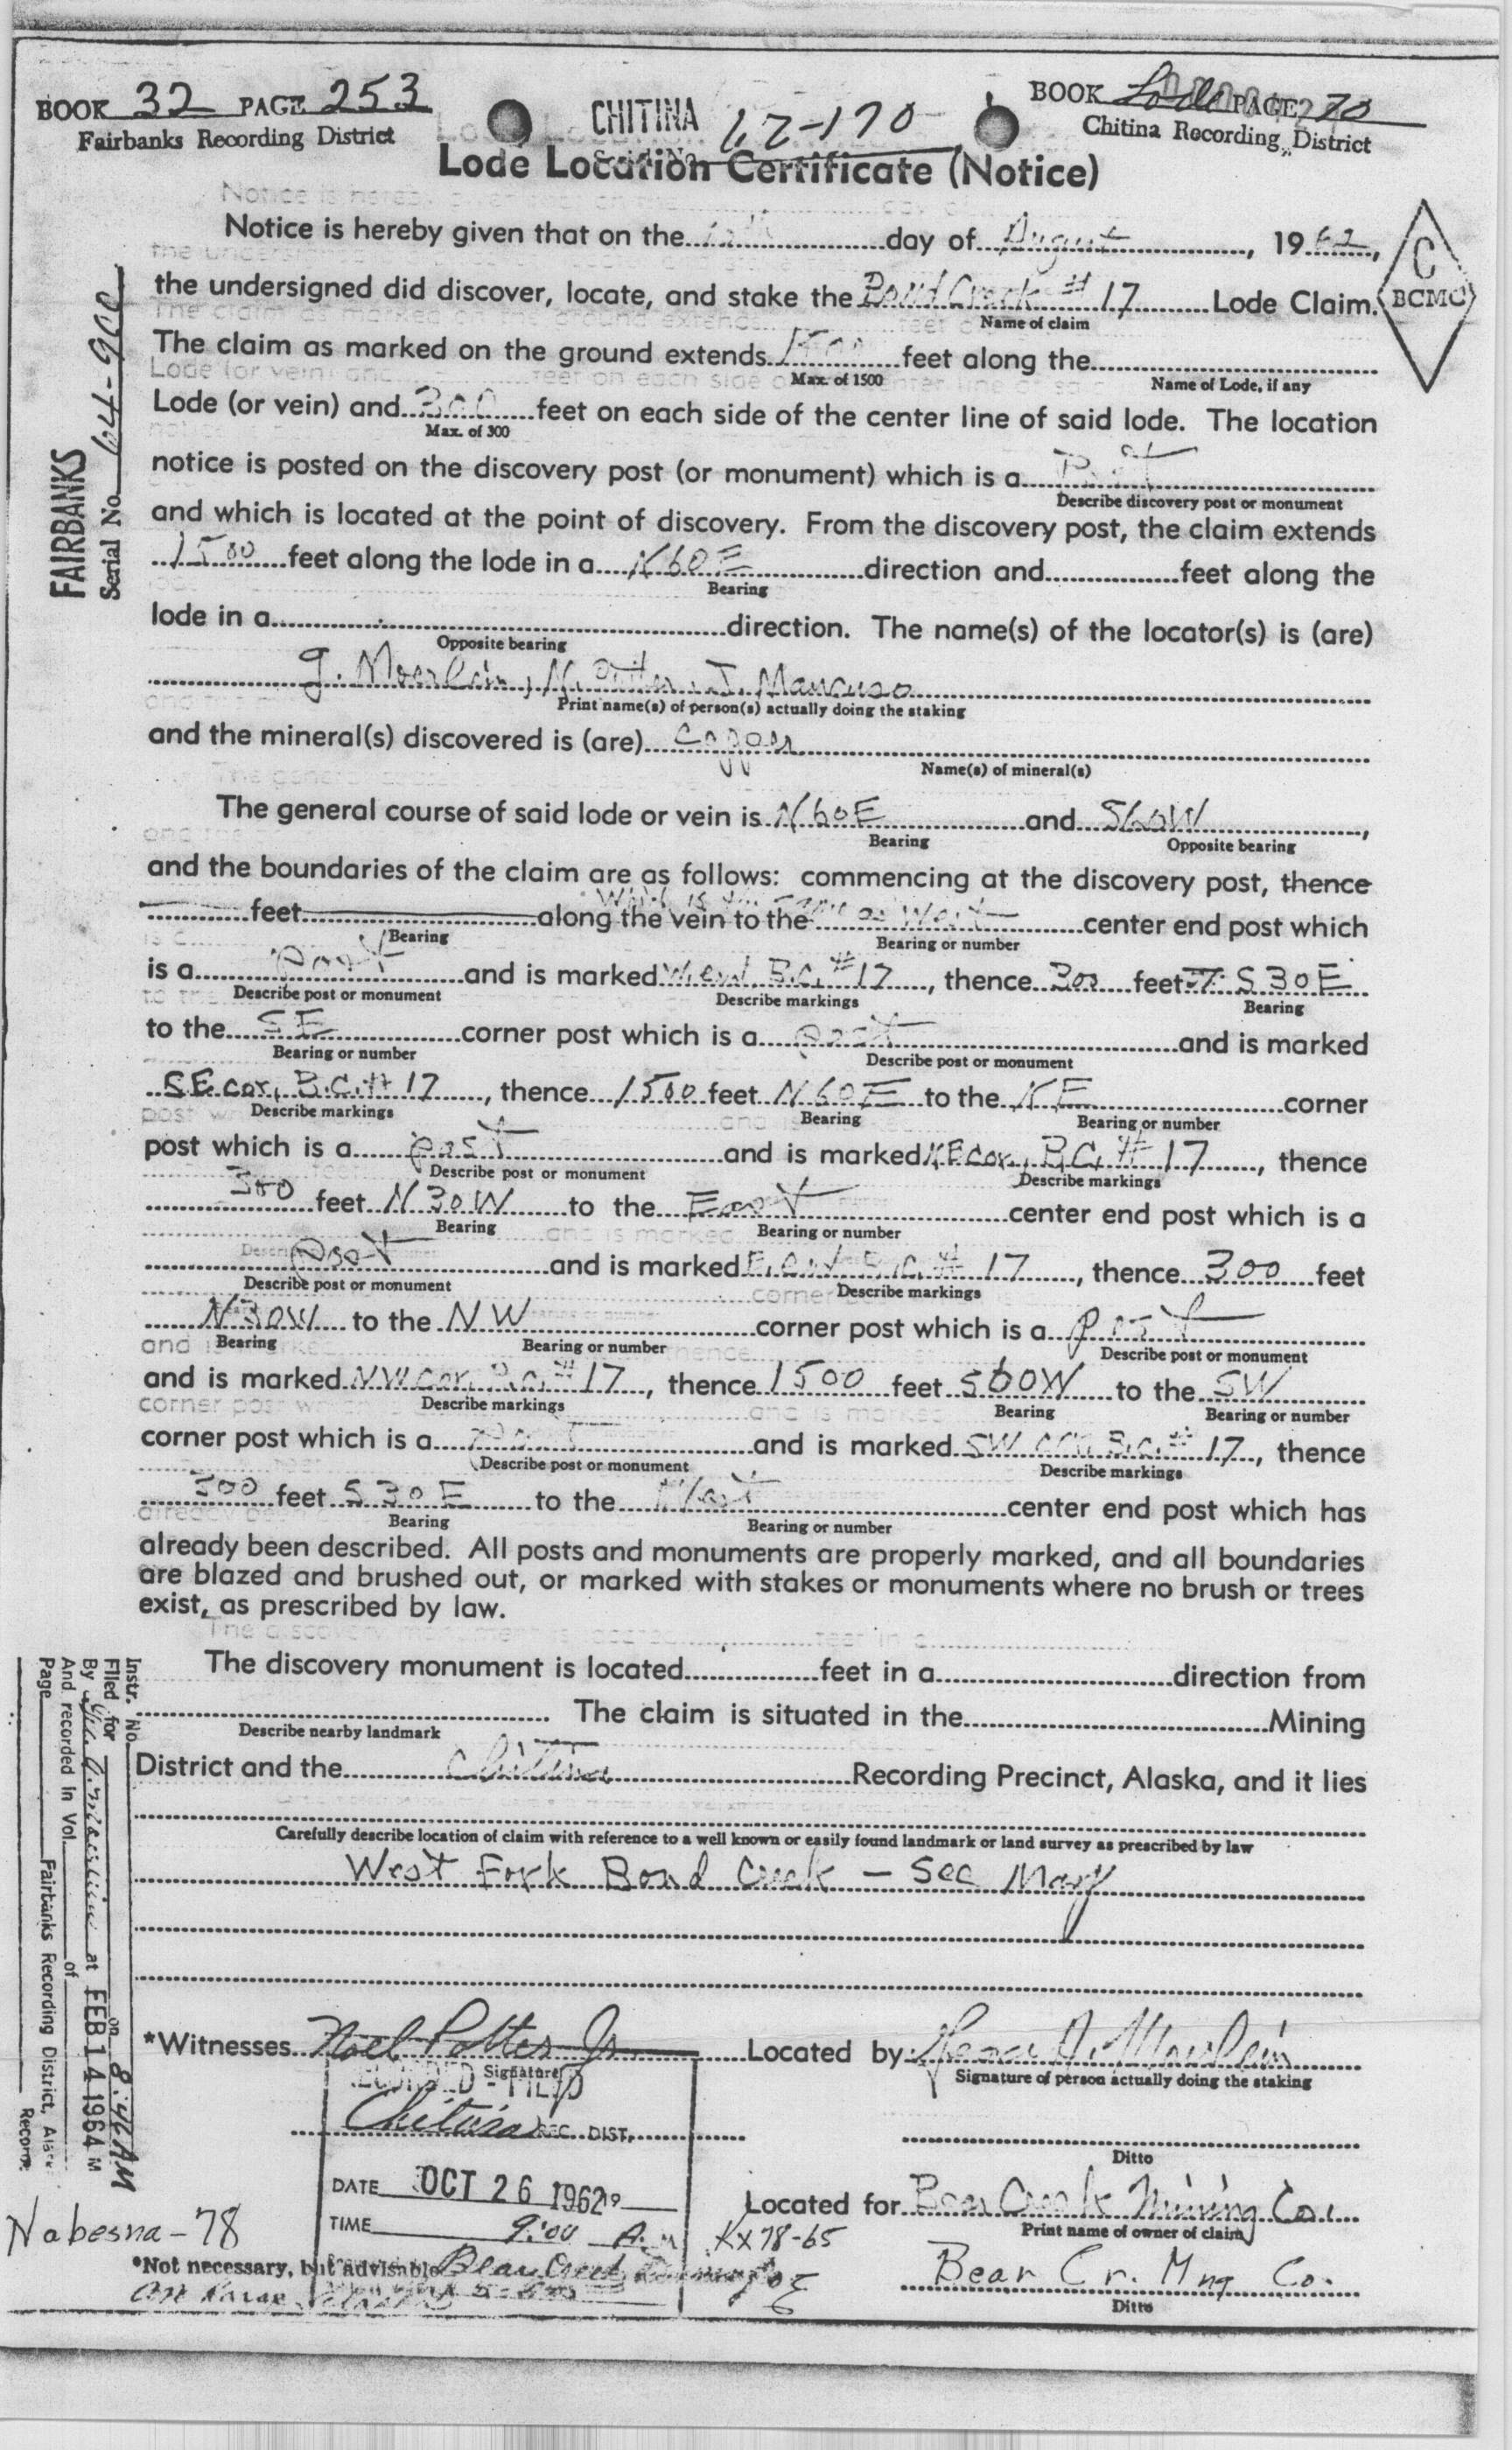 BOOK 32 PAGE 253
Fairbanks Recording District
CHITINA 62-170
BOOK Lode PAGE 270
Chitina Recording District
Lode Location Certificate (Notice)
Notice is hereby given that on the day of August, 1962,
the undersigned did discover, locate, and stake the Bond Creek #17 Lode Claim.
Name of claim
C
BCMC
The claim as marked on the ground extends 1500 feet along the
Max. of 1500 Name of Lode, if any
Lode (or vein) and 300 feet on each side of the center line of said lode. The location
Max. of 300
notice is posted on the discovery post (or monument) which is a Post
Describe discovery post or monument
and which is located at the point of discovery. From the discovery post, the claim extends
1500 feet along the lode in a N60E direction and feet along the
Bearing
lode in a direction. The name(s) of the locator(s) is (are)
Opposite bearing
G. Moerlein, N. Potter, J. Mancuso
Print name(s) of person(s) actually doing the staking
and the mineral(s) discovered is (are) Copper
Name(s) of mineral(s)
The general course of said lode or vein is N60E and S60W,
Bearing Opposite bearing
and the boundaries of the claim are as follows: commencing at the discovery post, thence
which is the same as
feet along the vein to the West center end post which
Bearing Bearing or number
is a post and is marked W. end, B.C. #17, thence 300 feet S30E
Describe post or monument Describe markings Bearing
to the SE corner post which is a post and is marked
Bearing or number Describe post or monument
SE cor, B.C. #17, thence 1500 feet N60E to the NE corner
Describe markings Bearing Bearing or number
post which is a post and is marked NE cor, B.C. #17, thence
Describe post or monument Describe markings
300 feet N30W to the East center end post which is a
Bearing Bearing or number
post and is marked E. end B.C. #17, thence 300 feet
Describe post or monument Describe markings
N30W to the NW corner post which is a post
Bearing Bearing or number Describe post or monument
and is marked NW cor, B.C. #17, thence 1500 feet S60W to the SW
Describe markings Bearing Bearing or number
corner post which is a post and is marked SW cor, B.C. #17, thence
Describe post or monument Describe markings
300 feet S30E to the West center end post which has
Bearing Bearing or number
already been described. All posts and monuments are properly marked, and all boundaries
are blazed and brushed out, or marked with stakes or monuments where no brush or trees
exist, as prescribed by law.
The discovery monument is located feet in a direction from
The claim is situated in the Mining
Describe nearby landmark
District and the Chitina Recording Precinct, Alaska, and it lies
Carefully describe location of claim with reference to a well known or easily found landmark or land survey as prescribed by law
West Fork Bond Creek - See Map
*Witnesses Noel Potter Jr. Located by
Signature Signature of person actually doing the staking
RECORDED - FILED
Chitina REC. DIST.
Ditto
DATE OCT 26 1962
Located for Bear Creek Mining Co.
TIME 9:00 A.M
KX78-65
Print name of owner of claim
Nabesna-78
*Not necessary, but advisable
Bear Creek Mining Co
Bear Cr. Mng Co.
Ditto
FAIRBANKS
Serial No. 64-900
Instr. No.
Filed for on 8:46 AM
By at FEB 14 1964 M
And recorded in Vol. of
Page Fairbanks Recording District, Alaska